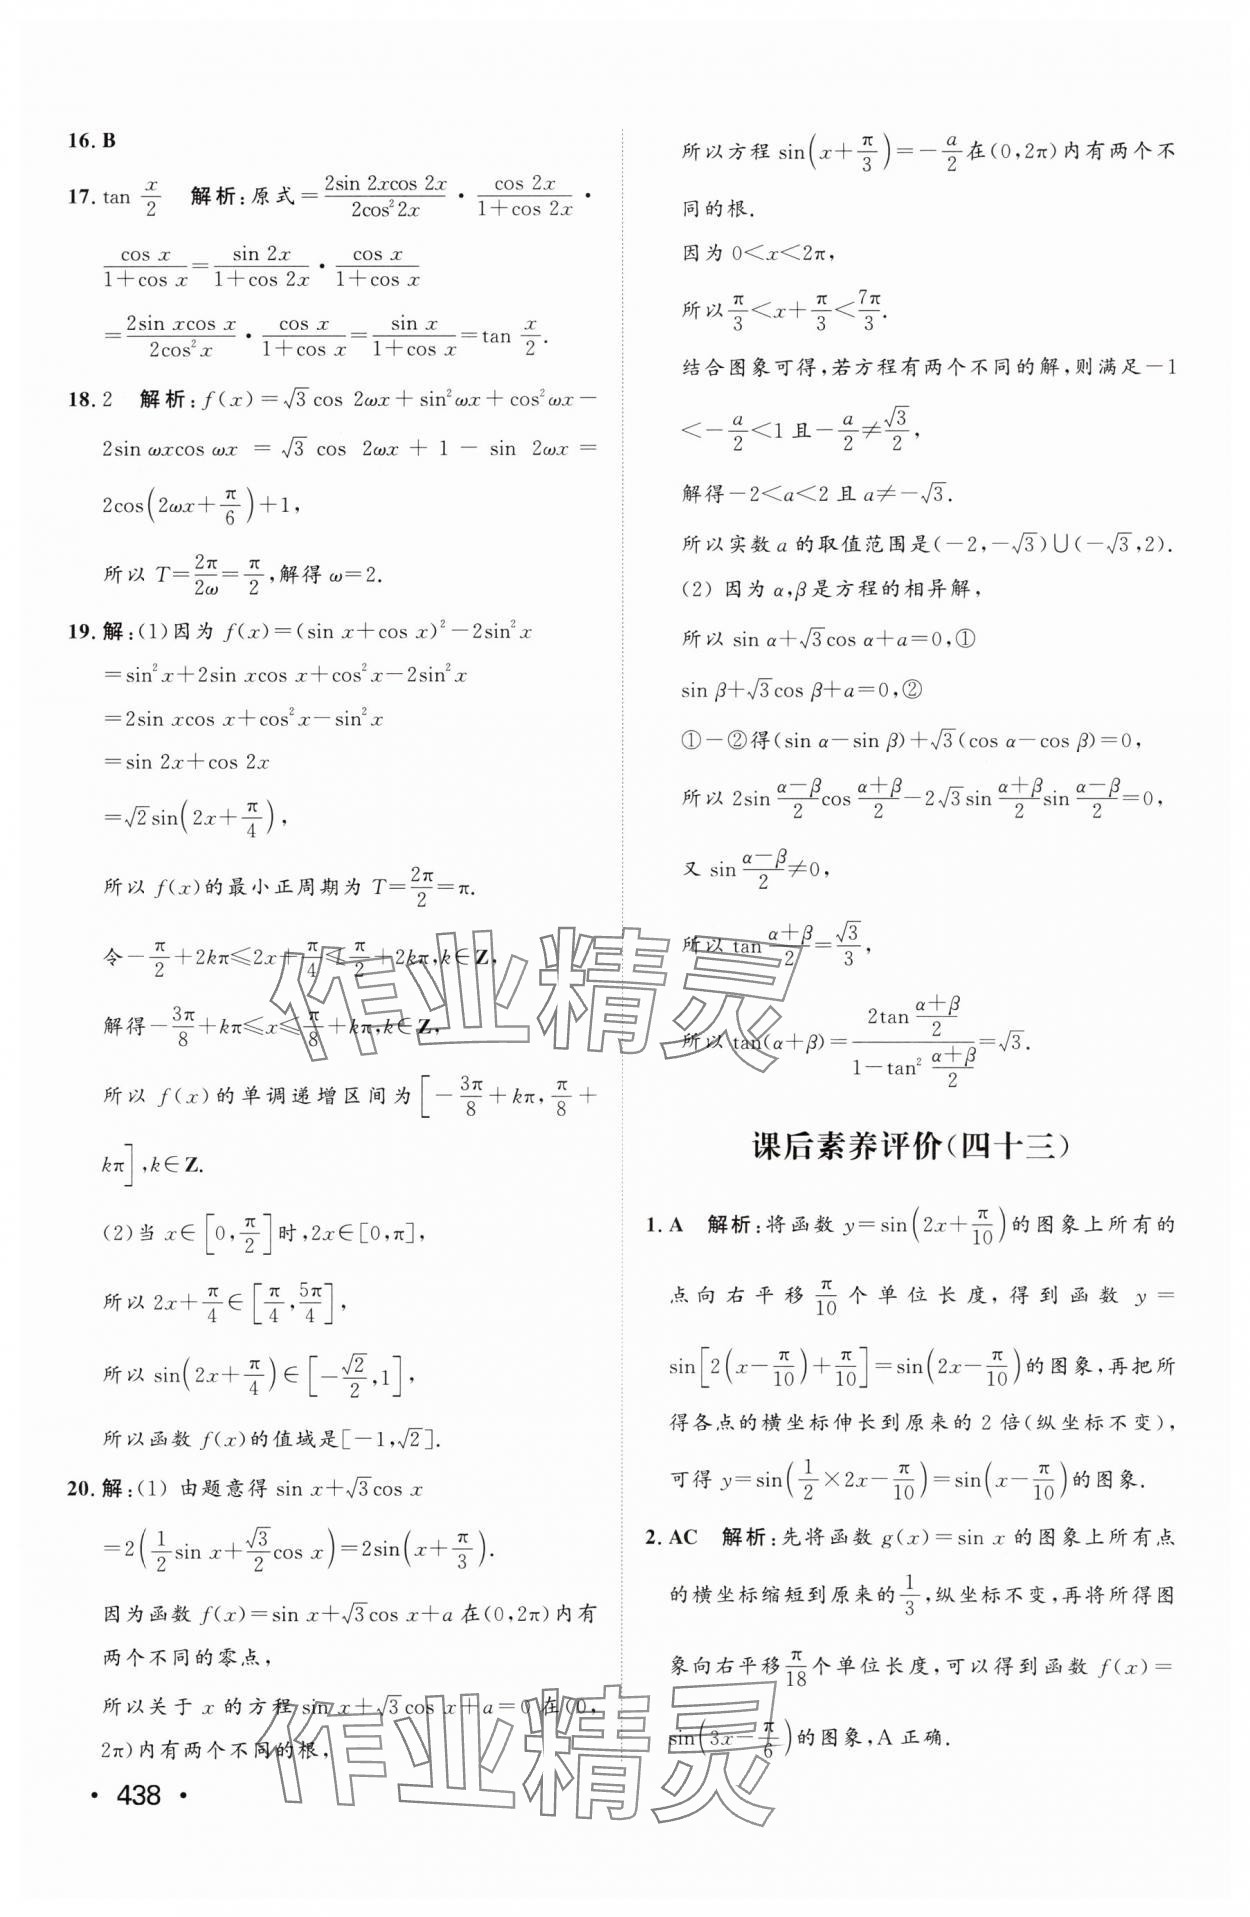 16. B
17. tan x/2　解析:原式=2sin 2xcos 2x/2cos²2x·cos 2x/1+cos 2x·
cos x/1+cos x=sin 2x/1+cos 2x·cos x/1+cos x
=2sin xcos x/2cos²x·cos x/1+cos x=sin x/1+cos x=tan x/2.
18. 2　解析:f(x)=√3cos 2ωx+sin²ωx+cos²ωx-
2sin ωxcos ωx=√3 cos 2ωx+1-sin 2ωx=
2cos(2ωx+π/6)+1,
所以 T=2π/2ω=π/2,解得 ω=2.
19. 解:(1)因为 f(x)=(sin x+cos x)²-2sin²x
=sin²x+2sin xcos x+cos²x-2sin²x
=2sin xcos x+cos²x-sin²x
=sin 2x+cos 2x
=√2sin(2x+π/4),
所以 f(x)的最小正周期为 T=2π/2=π.
令-π/2+2kπ≤2x+π/4≤π/2+2kπ,k∈Z,
解得-3π/8+kπ≤x≤π/8+kπ,k∈Z,
所以 f(x)的单调递增区间为[-3π/8+kπ,π/8+
kπ],k∈Z.
(2)当 x∈[0,π/2]时,2x∈[0,π],
所以 2x+π/4∈[π/4,5π/4],
所以 sin(2x+π/4)∈[-√2/2,1],
所以函数 f(x)的值域是[-1,√2].
20. 解:(1) 由题意得 sin x+√3cos x
=2(1/2sin x+√3/2cos x)=2sin(x+π/3).
因为函数 f(x)=sin x+√3cos x+a 在(0,2π)内有
两个不同的零点,
所以关于 x 的方程 sin x+√3cos x+a=0 在(0,
2π)内有两个不同的根,
· 438 ·
所以方程 sin(x+π/3)=-a/2在(0,2π)内有两个不
同的根.
因为 0<x<2π,
所以π/3<x+π/3<7π/3.
结合图象可得,若方程有两个不同的解,则满足-1
<-a/2<1 且-a/2≠√3/2,
解得-2<a<2 且 a≠-√3.
所以实数 a 的取值范围是(-2,-√3)∪(-√3,2).
(2) 因为 α,β是方程的相异解,
所以 sin α+√3cos α+a=0,①
sin β+√3cos β+a=0,②
①-②得(sin α-sin β)+√3(cos α-cos β)=0,
所以 2sin α-β/2cos α+β/2-2√3sin α+β/2sin α-β/2=0,
又 sin α-β/2≠0,
所以 tan α+β/2=√3/3,
所以 tan(α+β)=2tan α+β/2/1-tan² α+β/2=√3.
课后素养评价(四十三)
1. A　解析:将函数 y=sin(2x+π/10)的图象上所有的
点向右平移π/10个单位长度,得到函数 y=
sin[2(x-π/10)+π/10]=sin(2x-π/10)的图象,再把所
得各点的横坐标伸长到原来的 2 倍(纵坐标不变),
可得 y=sin(1/2×2x-π/10)=sin(x-π/10)的图象.
2. AC　解析:先将函数 g(x)=sin x 的图象上所有点
的横坐标缩短到原来的1/3,纵坐标不变,再将所得图
象向右平移π/18个单位长度,可以得到函数 f(x)=
sin(3x-π/6)的图象,A 正确.
作业精灵
作业精灵